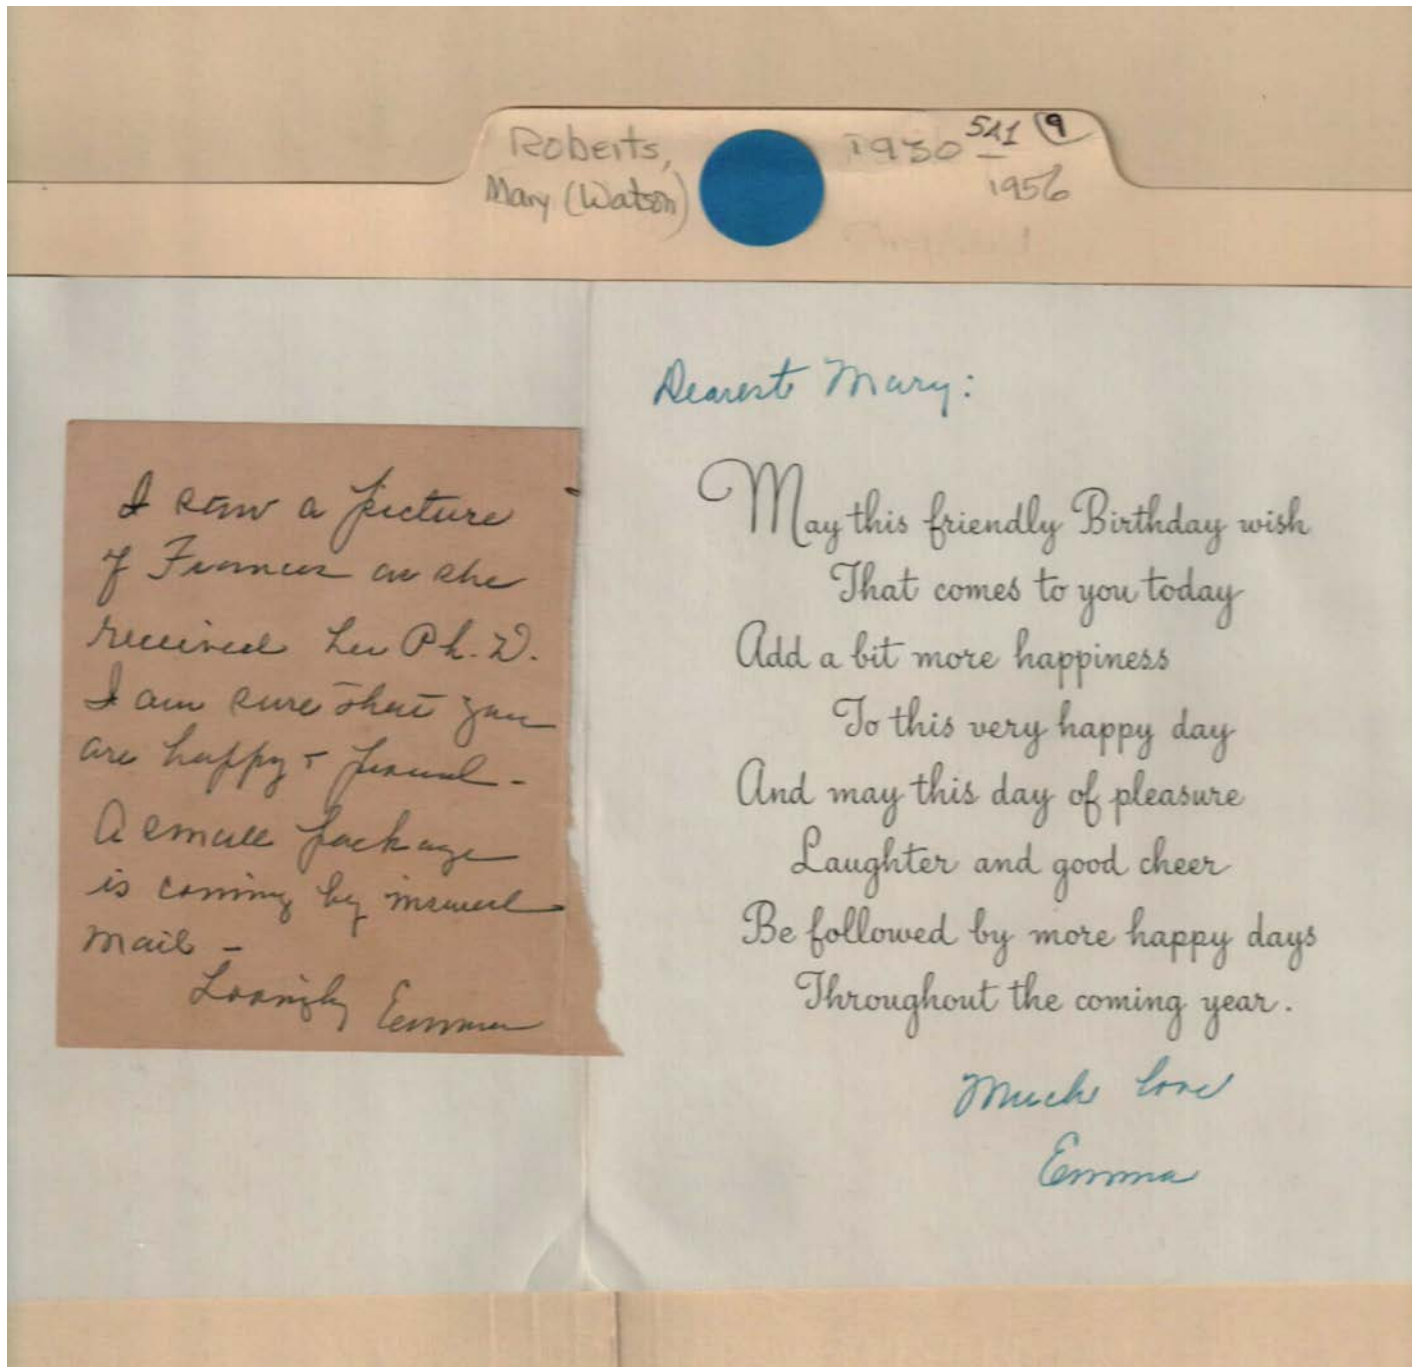 Roberts,
Mary (Watson)
1930 - 1956
5A1 9
I saw a picture
of Frances as she
received her Ph.D.
I am sure that you
are happy + proud -
A small package
is coming by insured
mail -
Lovingly Emma
Dearest Mary:
May this friendly Birthday wish
That comes to you today
Add a bit more happiness
To this very happy day
And may this day of pleasure
Laughter and good cheer
Be followed by more happy days
Throughout the coming year.
Much love
Emma